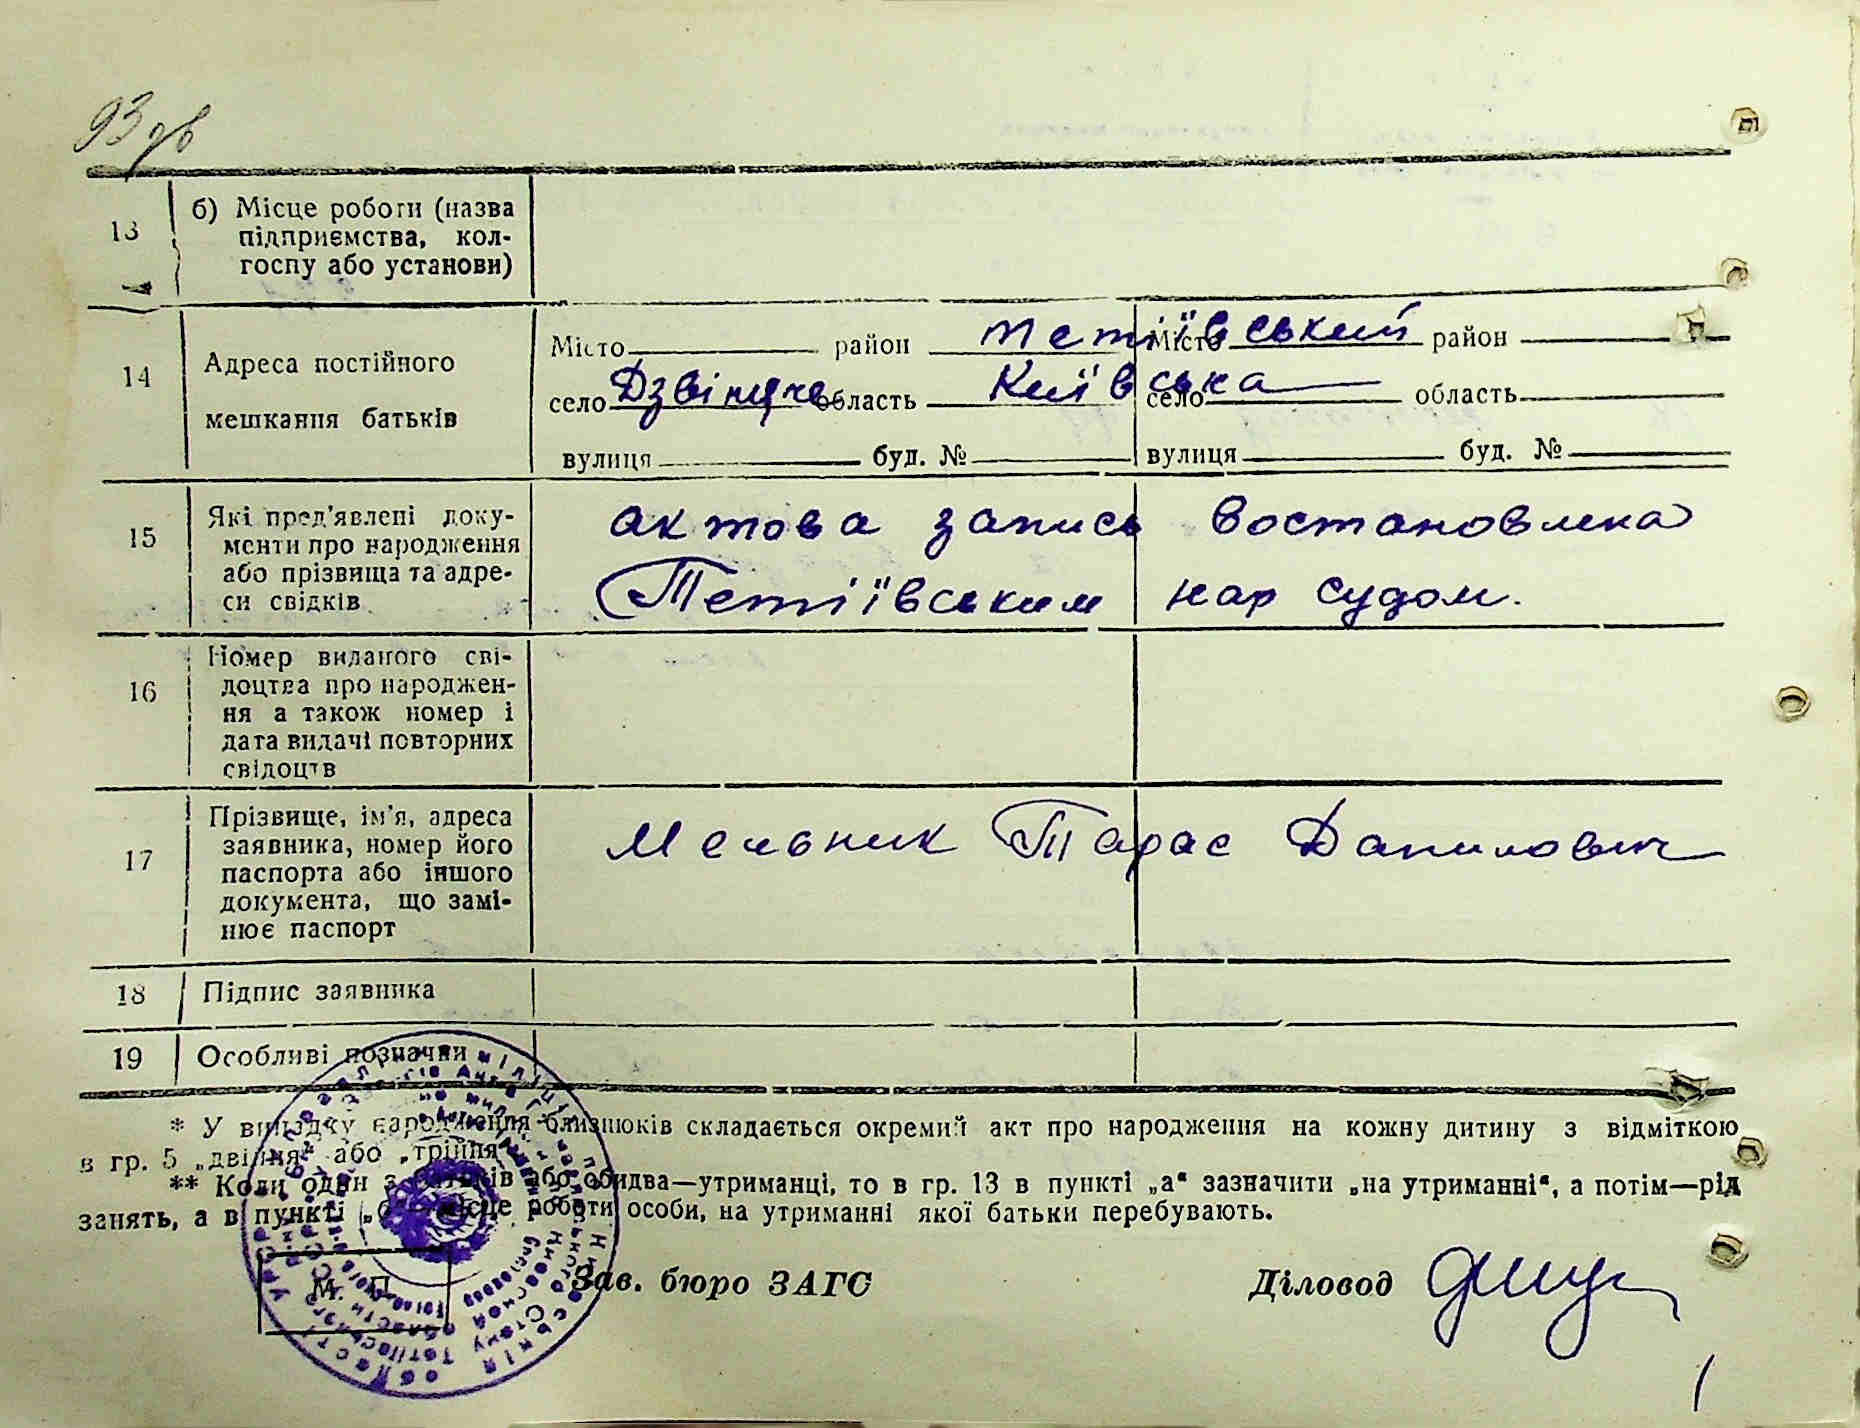 93 зв
13 б) Місце роботи (назва
підприємства, кол-
госпу або установи)
14 Адреса постійного
мешкання батьків
Місто район Тетіївський Місто район
село Дзвіняче область Київська село область
вулиця буд. № вулиця буд. №
15 Які пред'явлені доку-
менти про народження
або прізвища та адре-
си свідків
актова запись востановлена
Тетіївським нар судом.
16 Номер виданого сві-
доцтва про народжен-
ня а також номер і
дата видачі повторних
свідоцтв
17 Прізвище, ім'я, адреса
заявника, номер його
паспорта або іншого
документа, що замі-
нює паспорт
Мельник Тарас Данилович
18 Підпис заявника
19 Особливі позначки
* У випадку народження близнюків складається окремий акт про народження на кожну дитину з відміткою
в гр. 5 „двійня" або „трійня"
** Коли один з батьків або обидва—утриманці, то в гр. 13 в пункті „а" зазначити „на утриманні", а потім—рід
занять, а в пункті „б" місце роботи особи, на утриманні якої батьки перебувають.
М. П. Зав. бюро ЗАГС Діловод